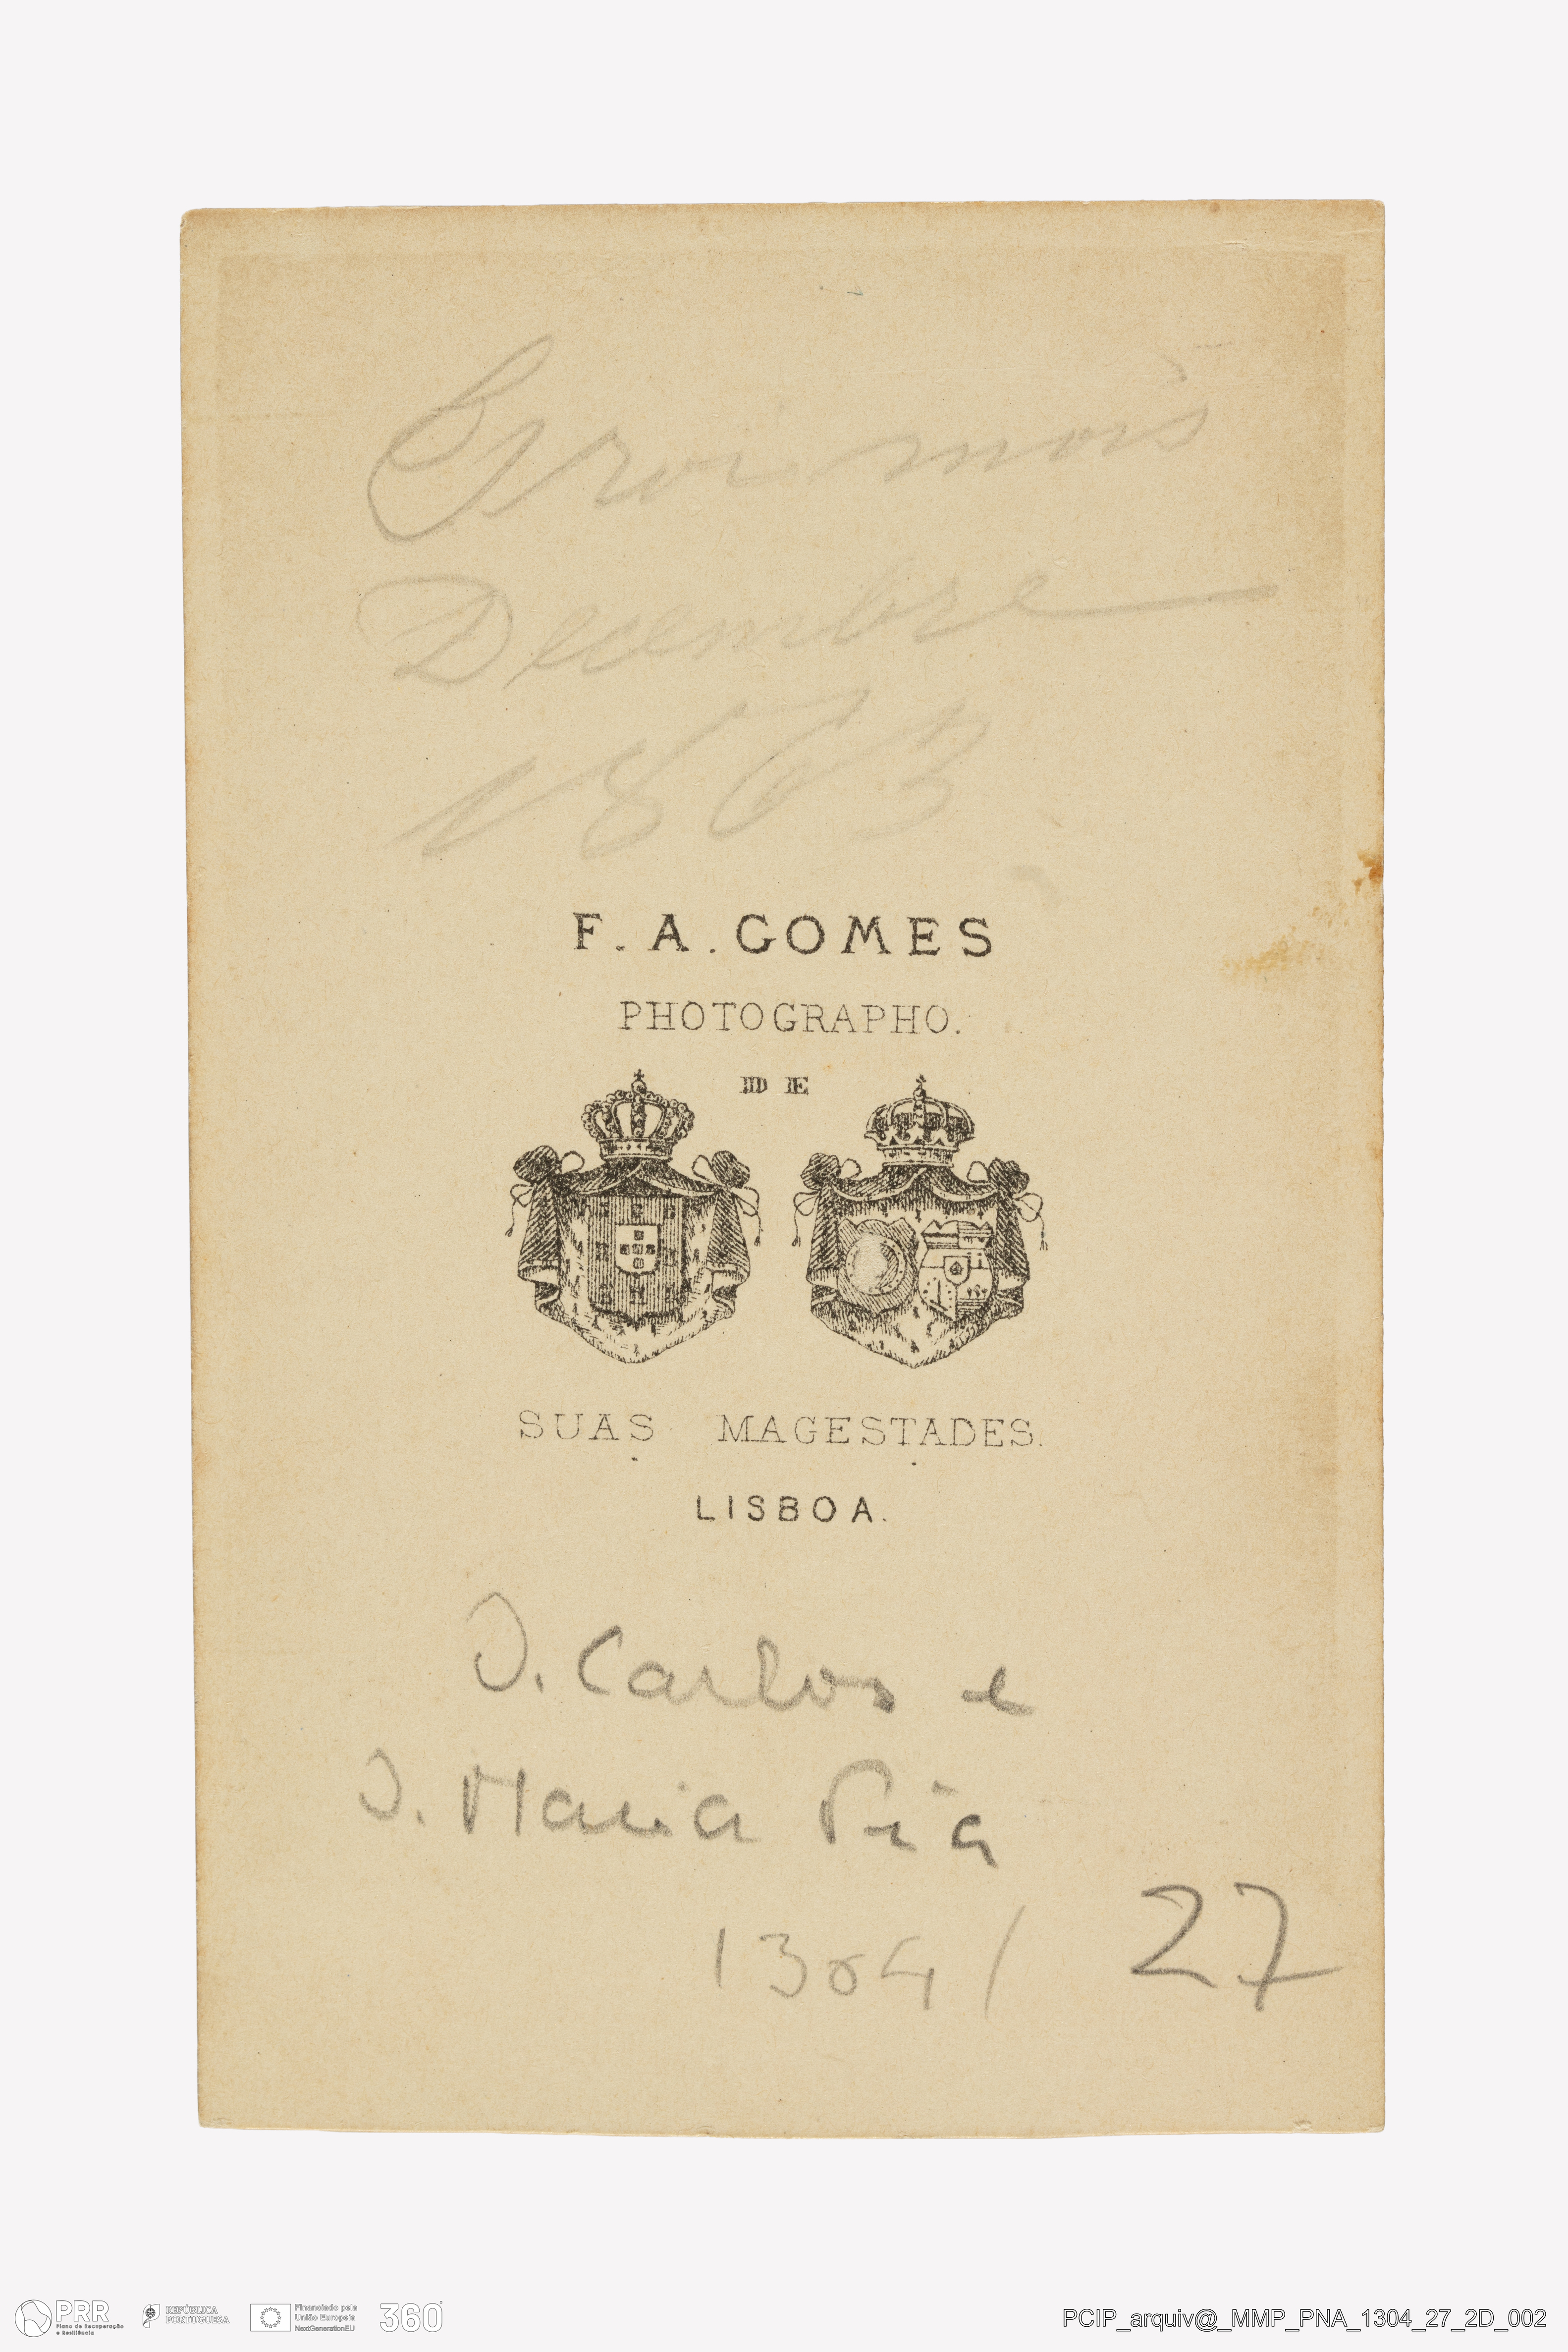 Trois mois
Decembre
1863
F. A. GOMES
PHOTOGRAPHO.
DE
SUAS MAGESTADES.
LISBOA.
D. Carlos e
D. Maria Pia
1304 / 27
PRR
Plano de Recuperação
e Resiliência
REPÚBLICA
PORTUGUESA
Financiado pela
União Europeia
NextGenerationEU
360°
PCIP_arquiv@_MMP_PNA_1304_27_2D_002